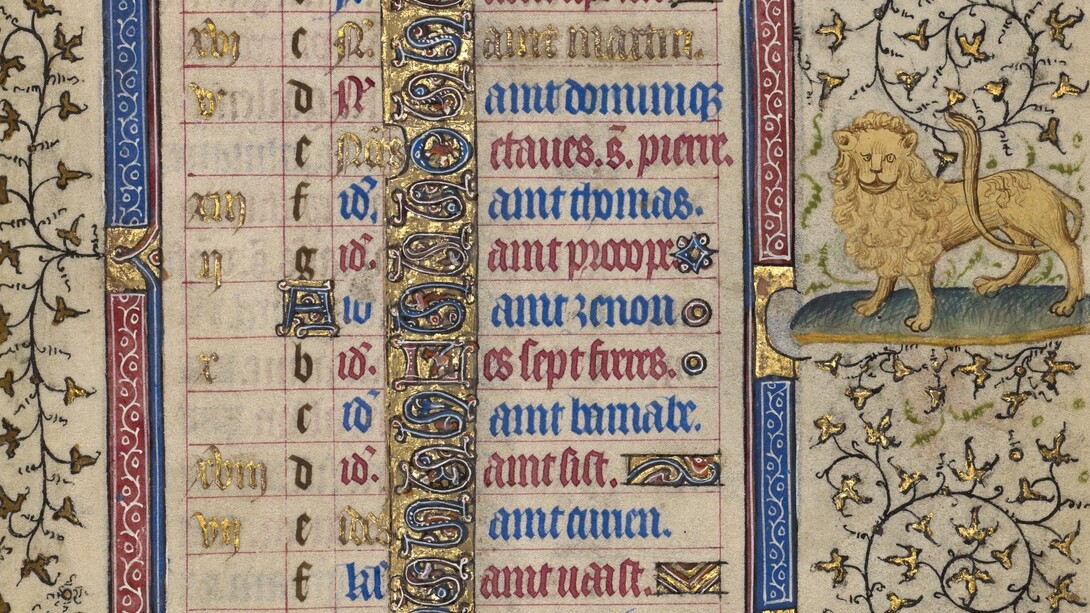 xvij c N. Saint martin.
v. d N. Saint dominiq
e Octaues. s. pierre.
xiij f id. Saint thomas.
ij g id. Saint procope
A id Saint zenon
x b id. Les sept freres.
c id Saint barnabe.
xviij d id. Saint sist.
vij e idus Saint
f kl Saint uaast.